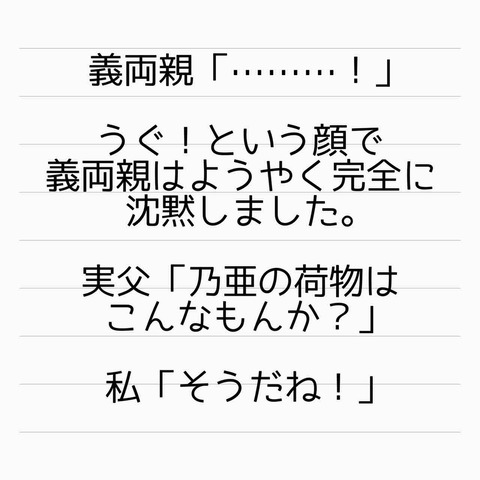 義両親「………！」
うぐ！という顔で
義両親はようやく完全に
沈黙しました。
実父「乃亜の荷物は
こんなもんか？」
私「そうだね！」